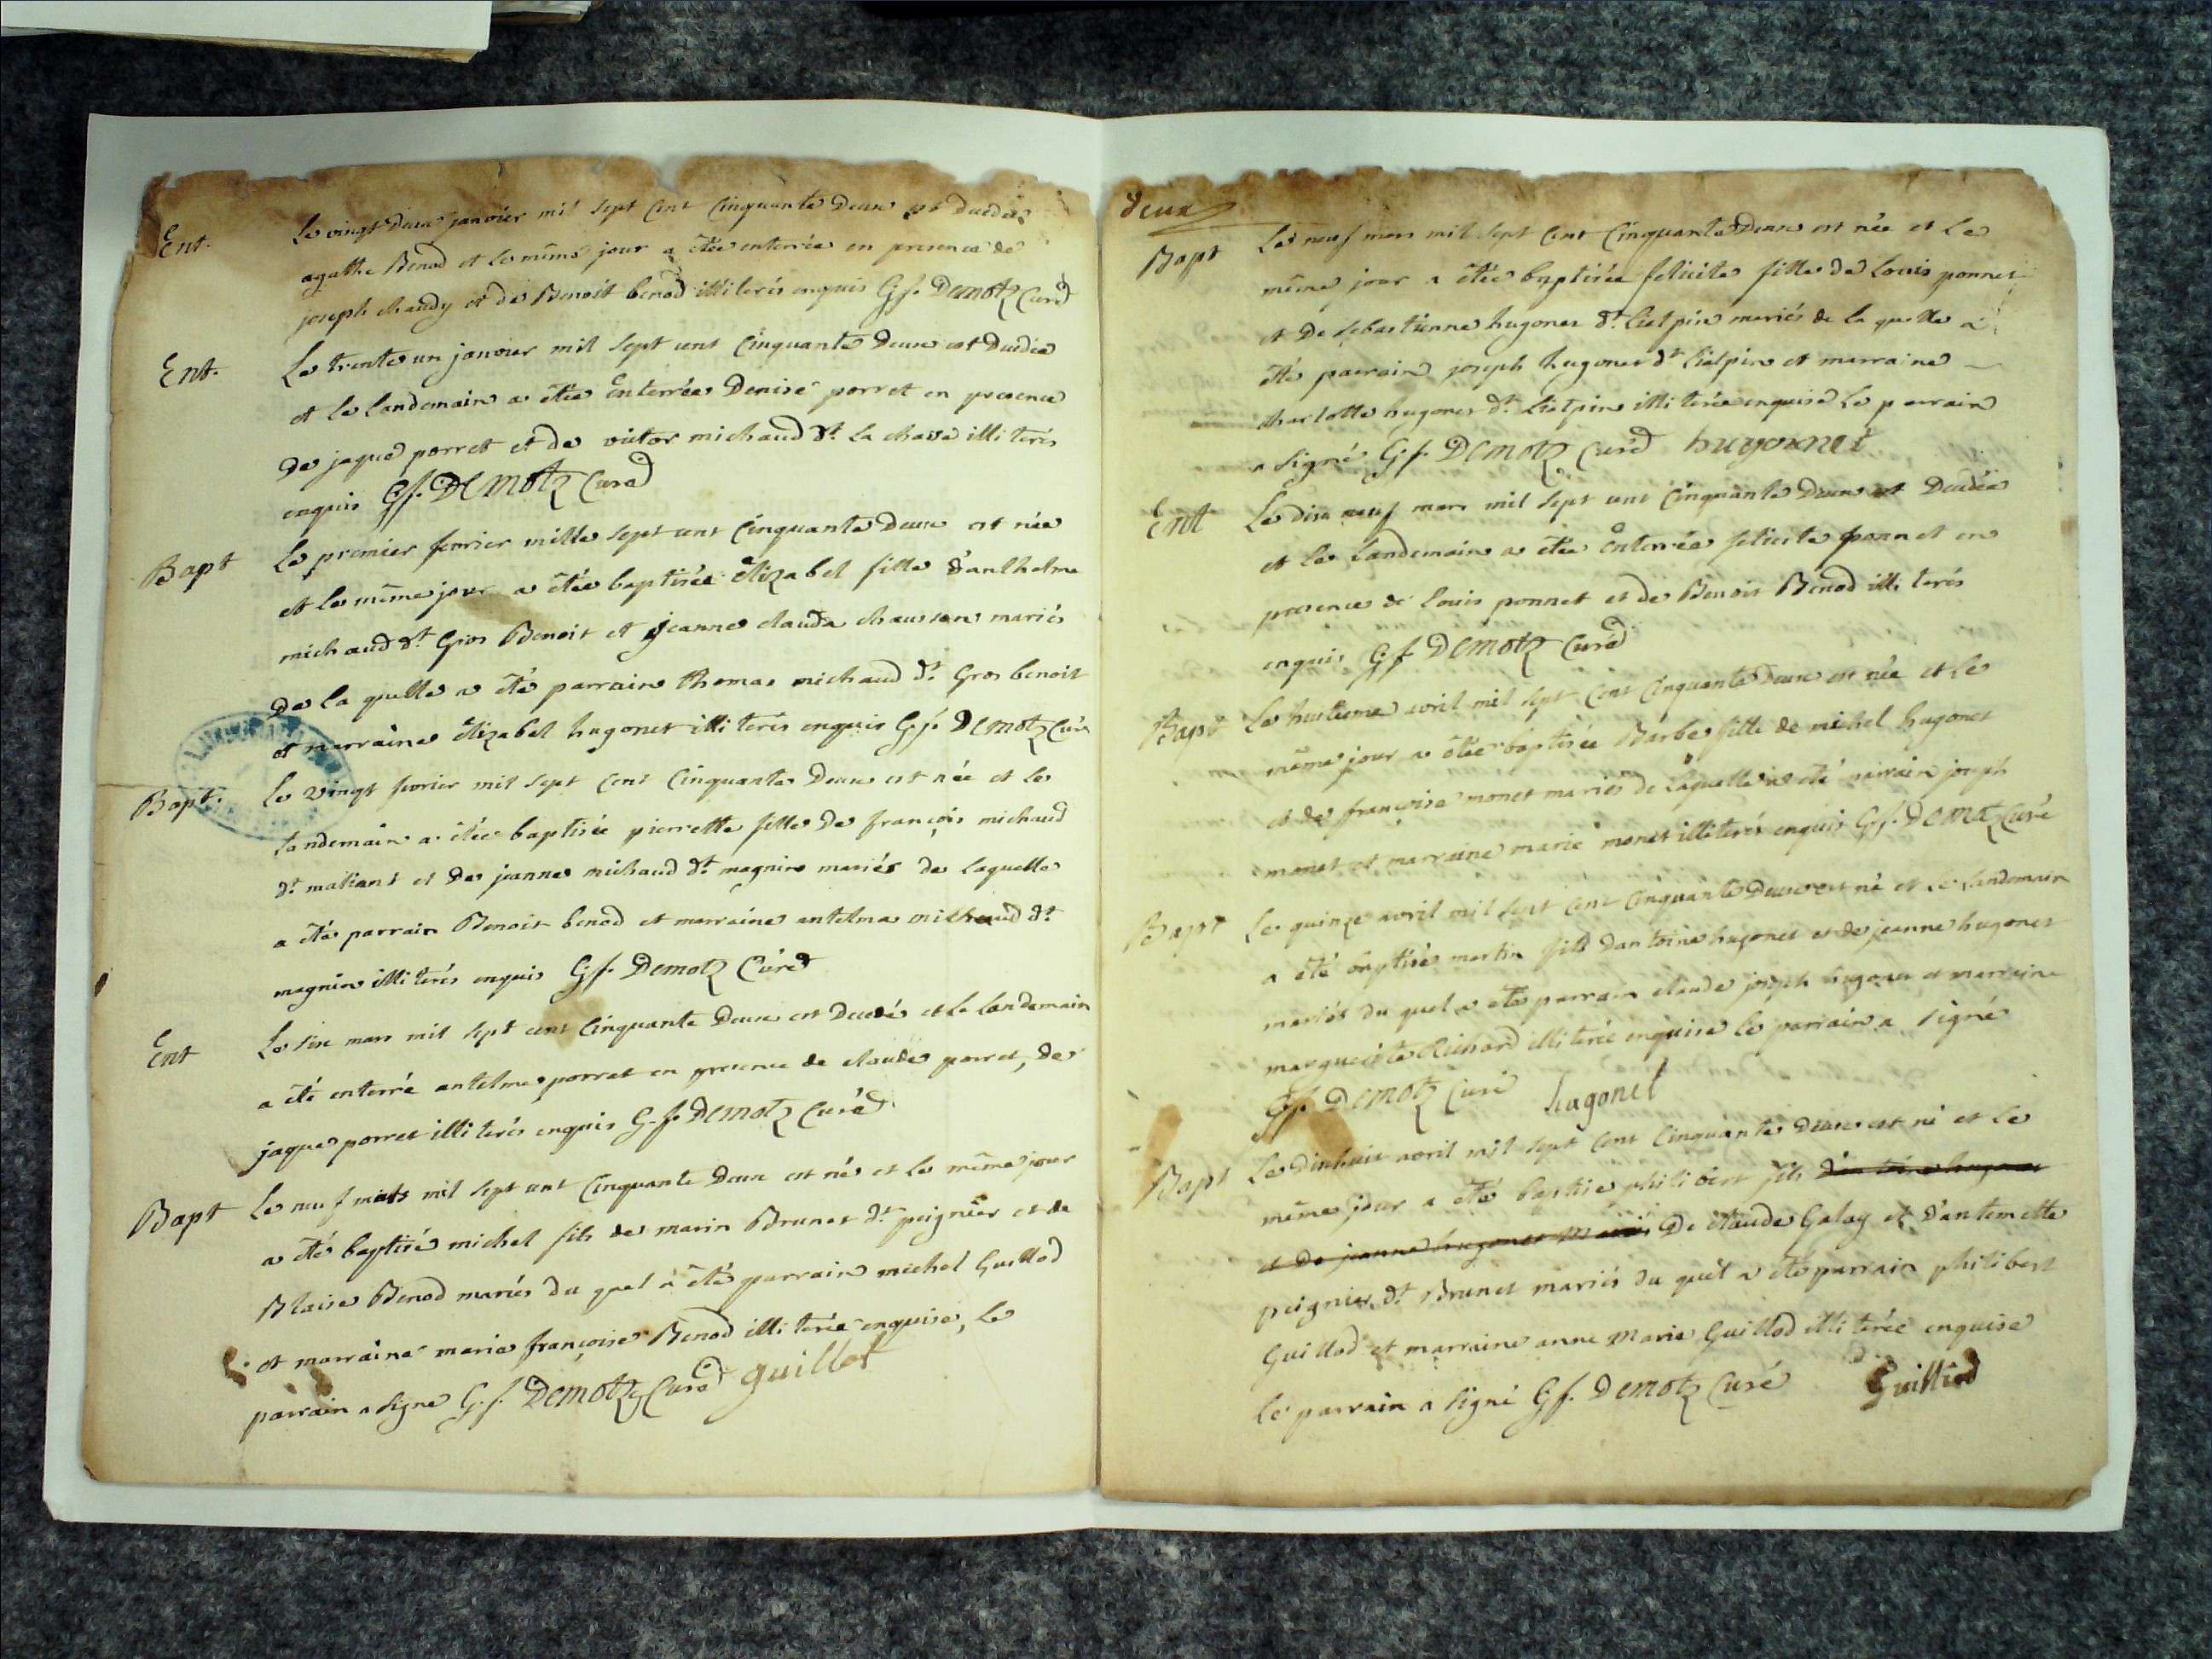 Ent. Le vingt deux janvier mil sept cent cinquante deux est decdée
agathe Benod et le même jour a êtée enterrée en presence de
joseph chaudy et de Benoit benod illiterés enquis Gf. Demotz Curé
Ent. Le trente un janvier mil sept cent cinquante deux est decdée
et le landemain a êtée enterrée Denise porret en presence
de jaque porret et de victor michaud dt. la chava illiterés
enquis Gf. Demotz Curé
Bapt Le premier fevrier mille sept cent cinquante deux est née
et le même jour a êtée baptisée êlizabel fille d'anthelme
michaud dt. Gros Benoit et jeanne clauda chausson mariés
de la quelle a êté parrain thomas michaud dt. Gros benoit
et marraine êlizabel hugonet illiterés enquis Gf. Demotz Curé
Bapt. Le vingt fevrier mil sept cent cinquante deux est née et le
landemain a êtée baptisée pierrette fille de françois michaud
dt. maltant et de jeanne michaud dt. magnin mariés de laquelle
a êté parrain Benoit benod et marraine antelma michaud dt.
magnin illiterés enquis Gf. Demotz Curé
Ent Le six mars mil sept cent cinquante deux est decdé et le landemain
a êté enterré antelme porret en presence de claude porret, de
jaque porret illiterés enquis G.f. Demotz Curé
Bapt Le neuf mars mil sept cent cinquante deux est né et le même jour
a êté baptisé michel fils de marin Brunet dt. peignier et de
Blaise Benod mariés du quel a êté parrain michel Guillod
et marraine marie françoise Benod illiterée enquise, le
parrain a signe G.f. Demotz Curé guillot
deux
Bapt Le neuf mars mil sept cent cinquante deux est née et le
même jour a êtée baptisée felicite fille de Louis ponnet
et de sebastienne hugonet dt. liatpin mariés de la quelle a
êté parrain joseph hugonet dt. liatpin et marraine
charlotte hugonet dt. liatpin illiterée enquise le parrain
a signé Gf. Demotz Curé hugonnet
Ent Le dix neuf mars mil sept cent cinquante deux est decedée
et le landemain a êtée enterrée felicite ponnet en
presence de louis ponnet et de Benoit Benod illiterés
enquis Gf Demotz Curé
Bapt Le huitieme avril mil sept cent cinquante deux est née et le
même jour a êtée baptisée Barbe fille de michel hugonet
et de françoise monet mariés de laquelle a eté parrain joseph
monet et marraine marie monet illiterés enquis Gf. Demotz Curé
Bapt Le quinze avril mil sept cent cinquante deux est né et le landemain
a êté baptisé martin fils dantoine hugonet et de jeanne hugonet
mariés du quel a eté parrain claude joseph hugonet et marraine
margueritte Richard illiterée enquise le parrain a signé
Gf. Demotz Curé hugonet
Bapt Le dixhuit avril mil sept cent cinquante deux est né et le
même jour a êté baptisé philibert fils d'antoine hugonet
et de jeanne hugonet mariés De claude Galay et d'antemette
peignier dt. Brunet mariés du quel a êté parrain philibert
Guillod et marraine anne Marie Guillod illiterée enquise
Le parrain a signé Gf. Demotz Curé Guilliod